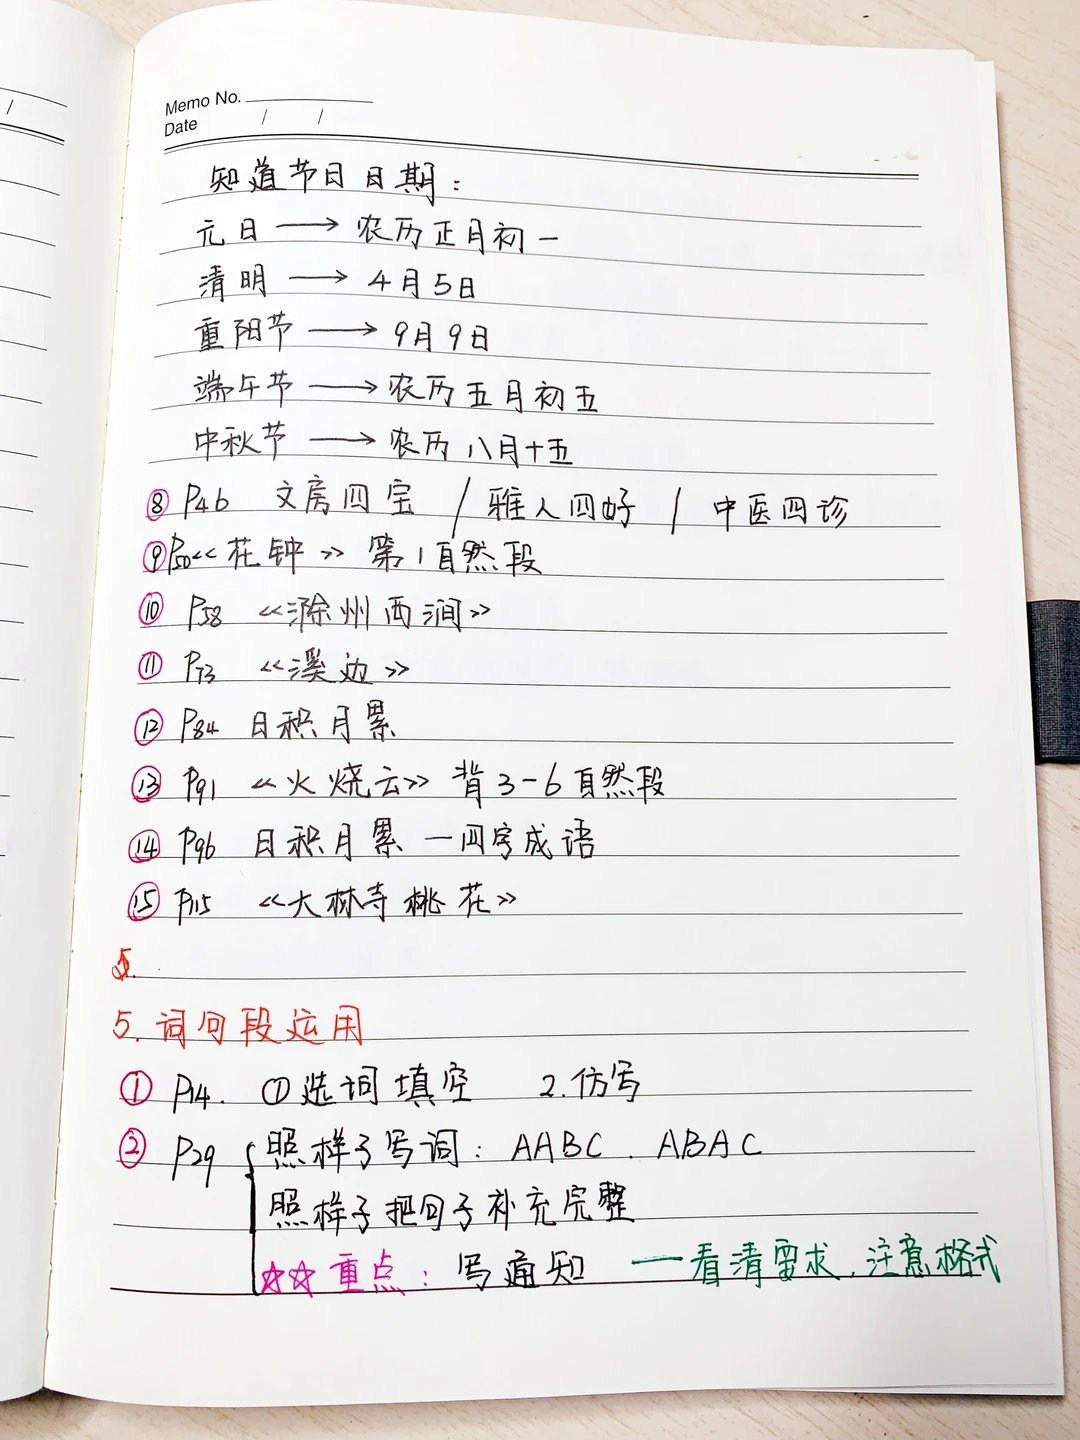 /
Memo No.
Date / /
知道节日日期：
元日 → 农历正月初一
清明 → 4月5日
重阳节 → 9月9日
端午节 → 农历五月初五
中秋节 → 农历八月十五
⑧ P46 文房四宝 / 雅人四好 / 中医四诊
⑨ P50《花钟》第1自然段
⑩ P58 《滁州西涧》
⑪ P73 《溪边》
⑫ P84 日积月累
⑬ P91 《火烧云》背3-6自然段
⑭ P96 日积月累 一四字成语
⑮ P115 《大林寺桃花》
5.
5. 词句段运用
① P14. ①选词填空 2.仿写
② P29 照样子写词：AABC . ABAC
照样子把句子补充完整
☆☆重点：写通知 —看清要求，注意格式